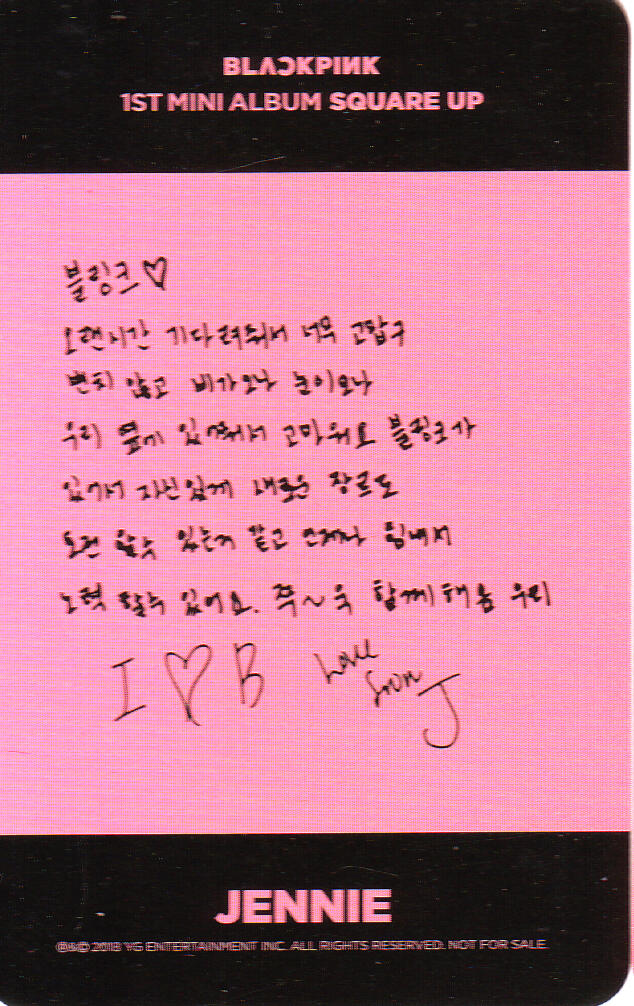 BLACKPINK
1ST MINI ALBUM SQUARE UP
블링크♡
오랜시간 기다려줘서 너무 고맙구
변치 않고 비가오나 눈이오나
우리 옆에 있어줘서 고마워요 블링크가
있어서 자신있게 새로운 장르도
도전 할수 있는거 같고 언제나 힘내서
노력 할수 있어요. 쭈~욱 함께해욤 우리
I ♡ B Love
from J
JENNIE
℗&© 2018 YG ENTERTAINMENT INC. ALL RIGHTS RESERVED. NOT FOR SALE.